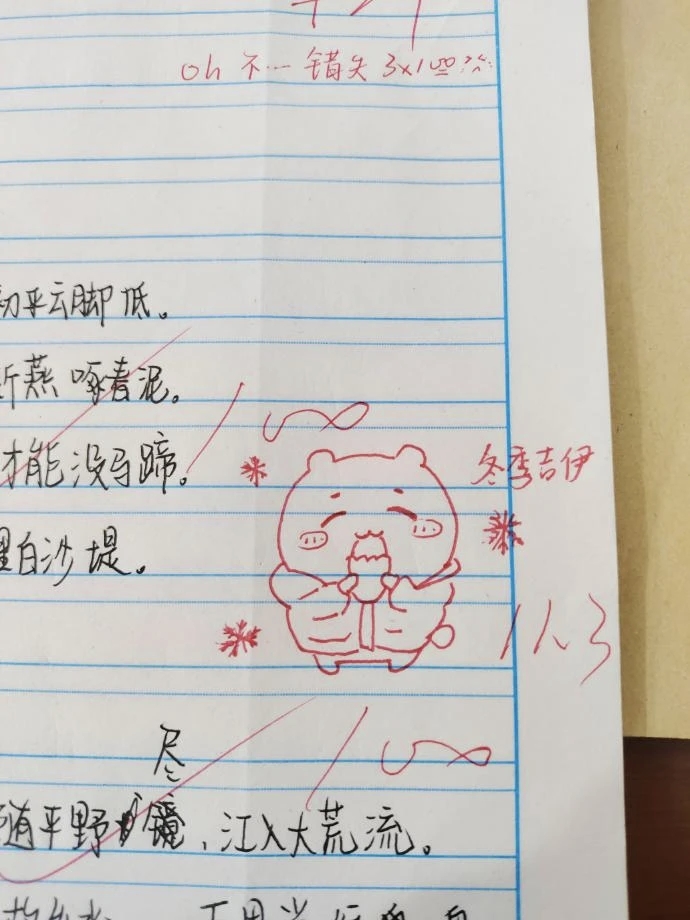 oh 不… 错失 3×100
初平云脚低。
新燕啄春泥。
100
才能没马蹄。
冬季吉伊
里白沙堤。
11.3
100
尽
随平野镜，江入大荒流。